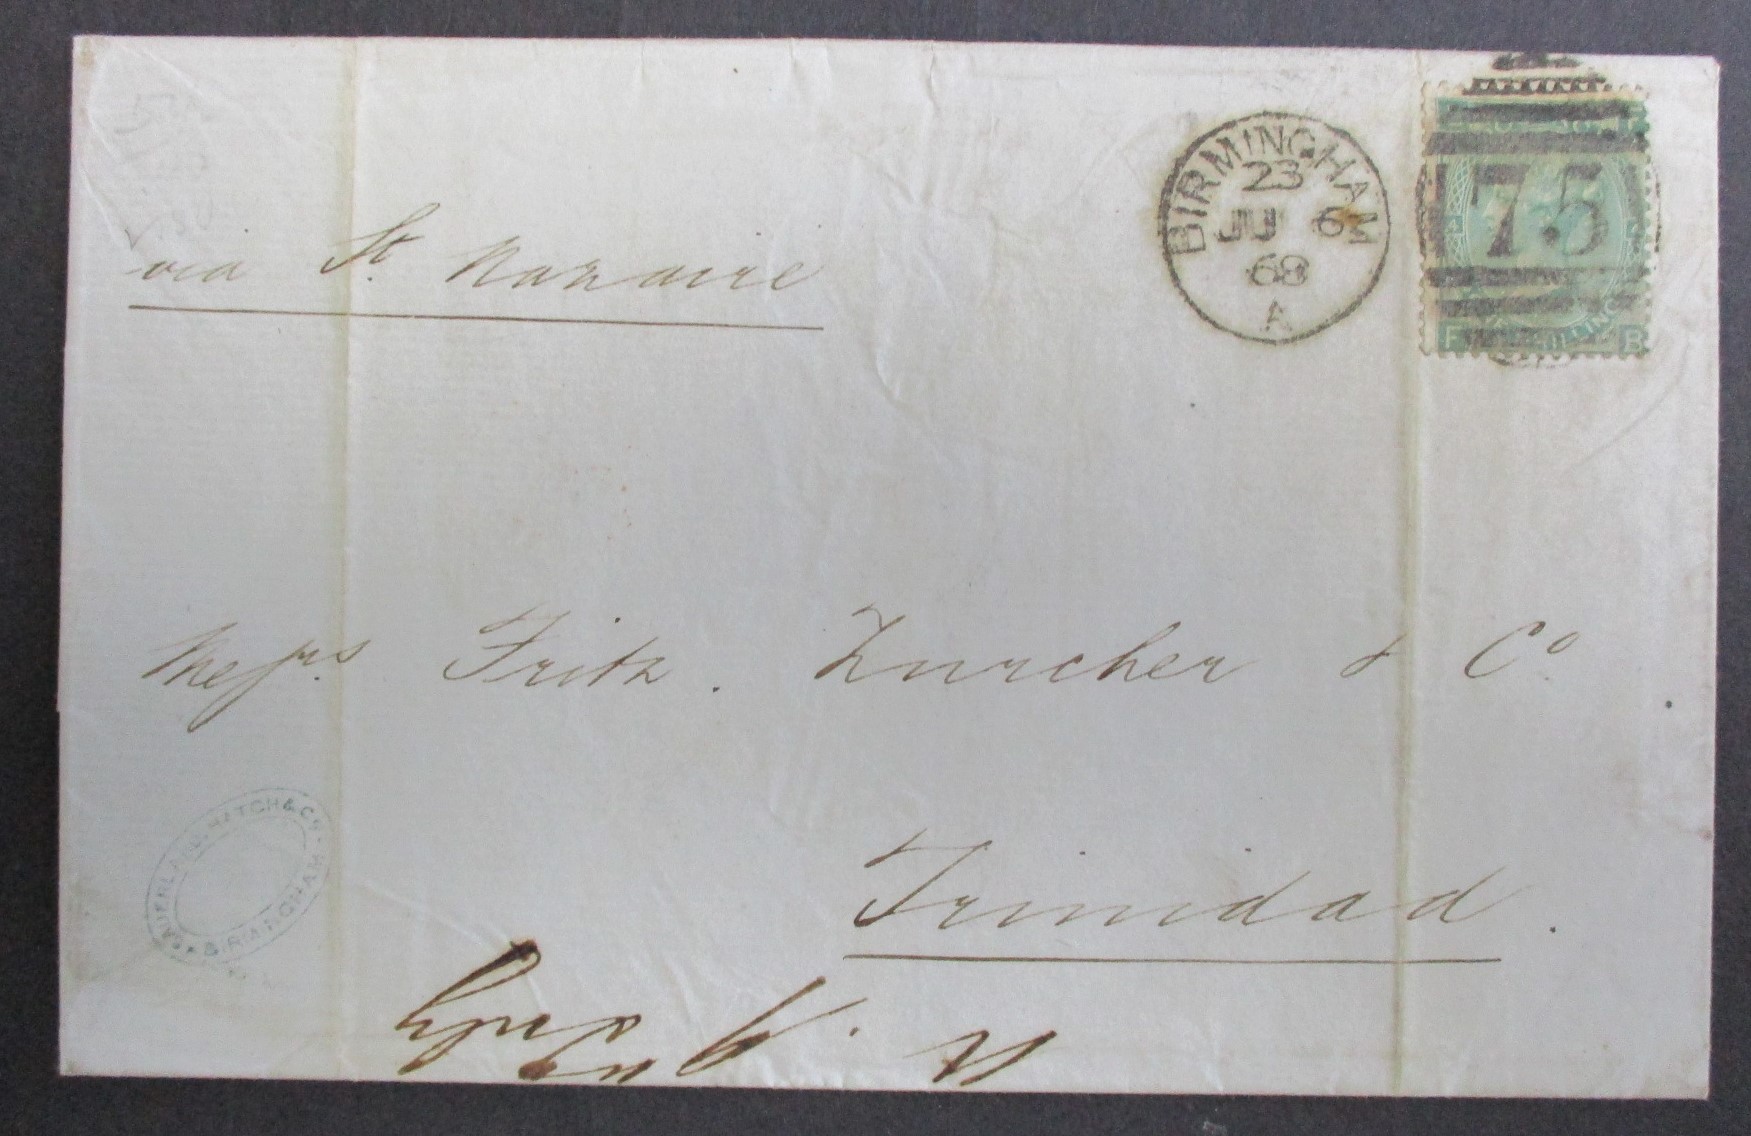 BIRMINGHAM
23
JU 6
68
A
75
SHILLING
F B
via St. Nazaire
Messrs. Fritz. Zurcher & Co
Trinidad.
HATCH & Co.
BIRMINGHAM